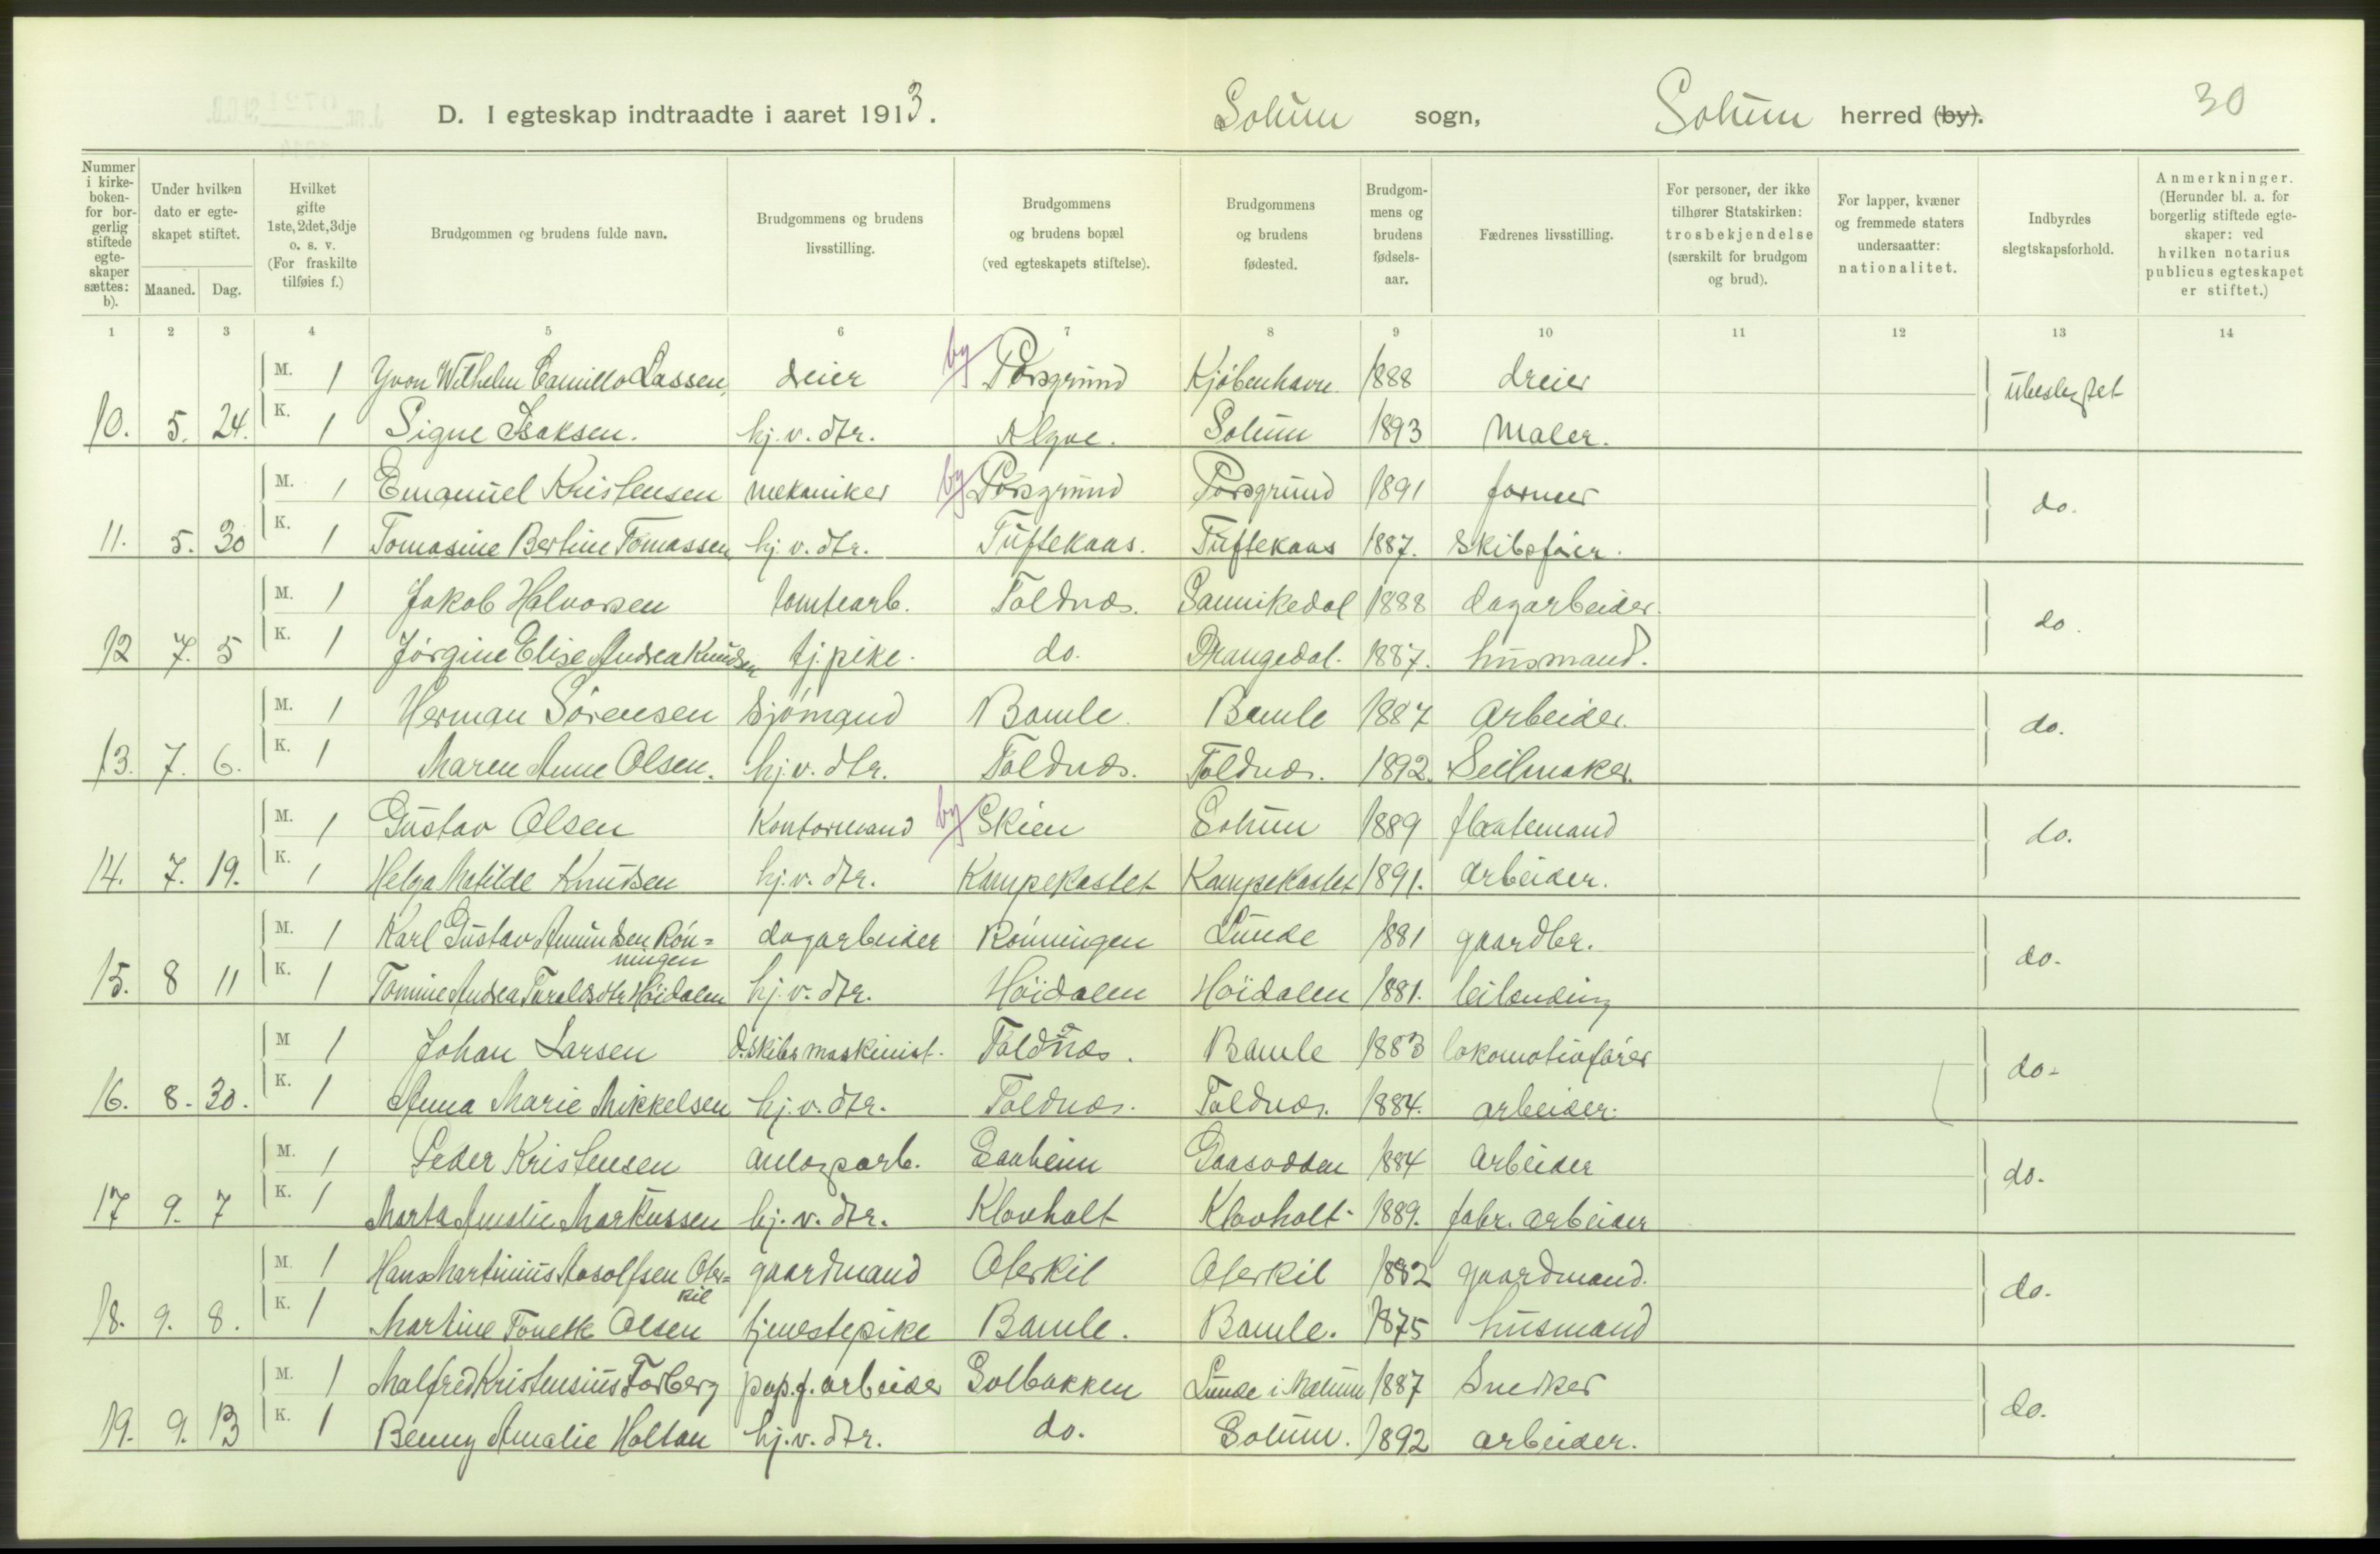 D. I egteskap indtraadte i aaret 1913. Solum sogn, Solum herred (by). 30
Nummer i kirkeboken- for borgerlig stiftede egteskaper sættes: b).
Under hvilken dato er egteskapet stiftet.
Maaned. Dag.
Hvilket gifte 1ste, 2det, 3dje o. s. v. (For fraskilte tilføies f.)
Brudgommen og brudens fulde navn.
Brudgommens og brudens livsstilling.
Brudgommens og brudens bopæl (ved egteskapets stiftelse).
Brudgommens og brudens fødested.
Brudgommens og brudens fødselsaar.
Fædrenes livsstilling.
For personer, der ikke tilhører Statskirken: trosbekjendelse (særskilt for brudgom og brud).
For lapper, kvæner og fremmede staters undersaatter: nationalitet.
Indbyrdes slegtskapsforhold.
Anmerkninger. (Herunder bl. a. for borgerlig stiftede egteskaper: ved hvilken notarius publicus egteskapet er stiftet.)
1 2 3 4 5 6 7 8 9 10 11 12 13 14
M. 1 Yvon Wilhelm Camillo Lassen, dreier by Porsgrund Kjøbenhavn. 1888 dreier ubeslegtet
10. 5. 24. K. 1 Signe Isaksen. hj. v. dtr. Solum 1893 Maler.
M. 1 Emanuel Kristensen mekaniker by Porsgrund Porsgrund 1891 former do.
11. 5. 30 K. 1 Tomasine Bertine Tomassen hj. v. dtr. Tuftekaas. Tuftekaas 1887. Skibsfører.
M. 1 Jakob Halvorsen tomtearb. Toldnæs. Sannikedal 1888 dagarbeider. do.
12 7. 5 K. 1 Jørgine Elise Andrea Knudsen tj. pike. do. Drangedal. 1887. husmand.
M. 1 Herman Sørensen Sjømand Bamle. Bamle 1887 Arbeider. do.
13. 7. 6. K. 1 Maren Anne Olsen. hj. v. dtr. Toldnæs. Toldnæs. 1892. Seilmaker.
M. 1 Gustav Olsen Kontormand by Skien Solum 1889 fløtemand do.
14. 7. 19. K. 1 Helga Matilde Knudsen hj. v. dtr. Kampekastet Kampekastet 1891. Arbeider.
M. 1 Karl Gustav Amundsen Røn= dagarbeider Rønningen Lunde 1881 gaardbr. do.
ningen
15. 8 11 K. 1 Tomine Andrea Taraldsdtr Høidalen hj. v. dtr. Høidalen Høidalen 1881. leilending
M 1 Johan Larsen d.skibsmaskinist. Toldnæs. Bamle 1883 lokomotivfører do.
16. 8. 30. K. 1 Anna Marie Mikkelsen hj. v. dtr. Toldnæs. Toldnæs. 1884. arbeider.
M. 1 Peder Kristensen anlægsarb. Saaheim Gaasodden 1884 Arbeider do.
17 9. 7 K. 1 Marta Amalie Markussen hj. v. dtr. Klovholt Klovholt 1889. fabr. arbeider
M. 1 Hans Martinius Aasolfsen Oter= gaardmand Oterkil Oterkil 1882 gaardmand. do.
kil
18. 9. 8. K. 1 Martine Tonette Olsen tjenestepike Bamle. Bamle. 1875 husmand
M. 1 Malfred Kristensius Forberg pap.f. arbeider Solbakken Lunde i Mælum 1887 Snedker do.
19. 9. 13 K. 1 Benny Amalie Holtan hj. v. dtr. do. Solum. 1892 arbeider.